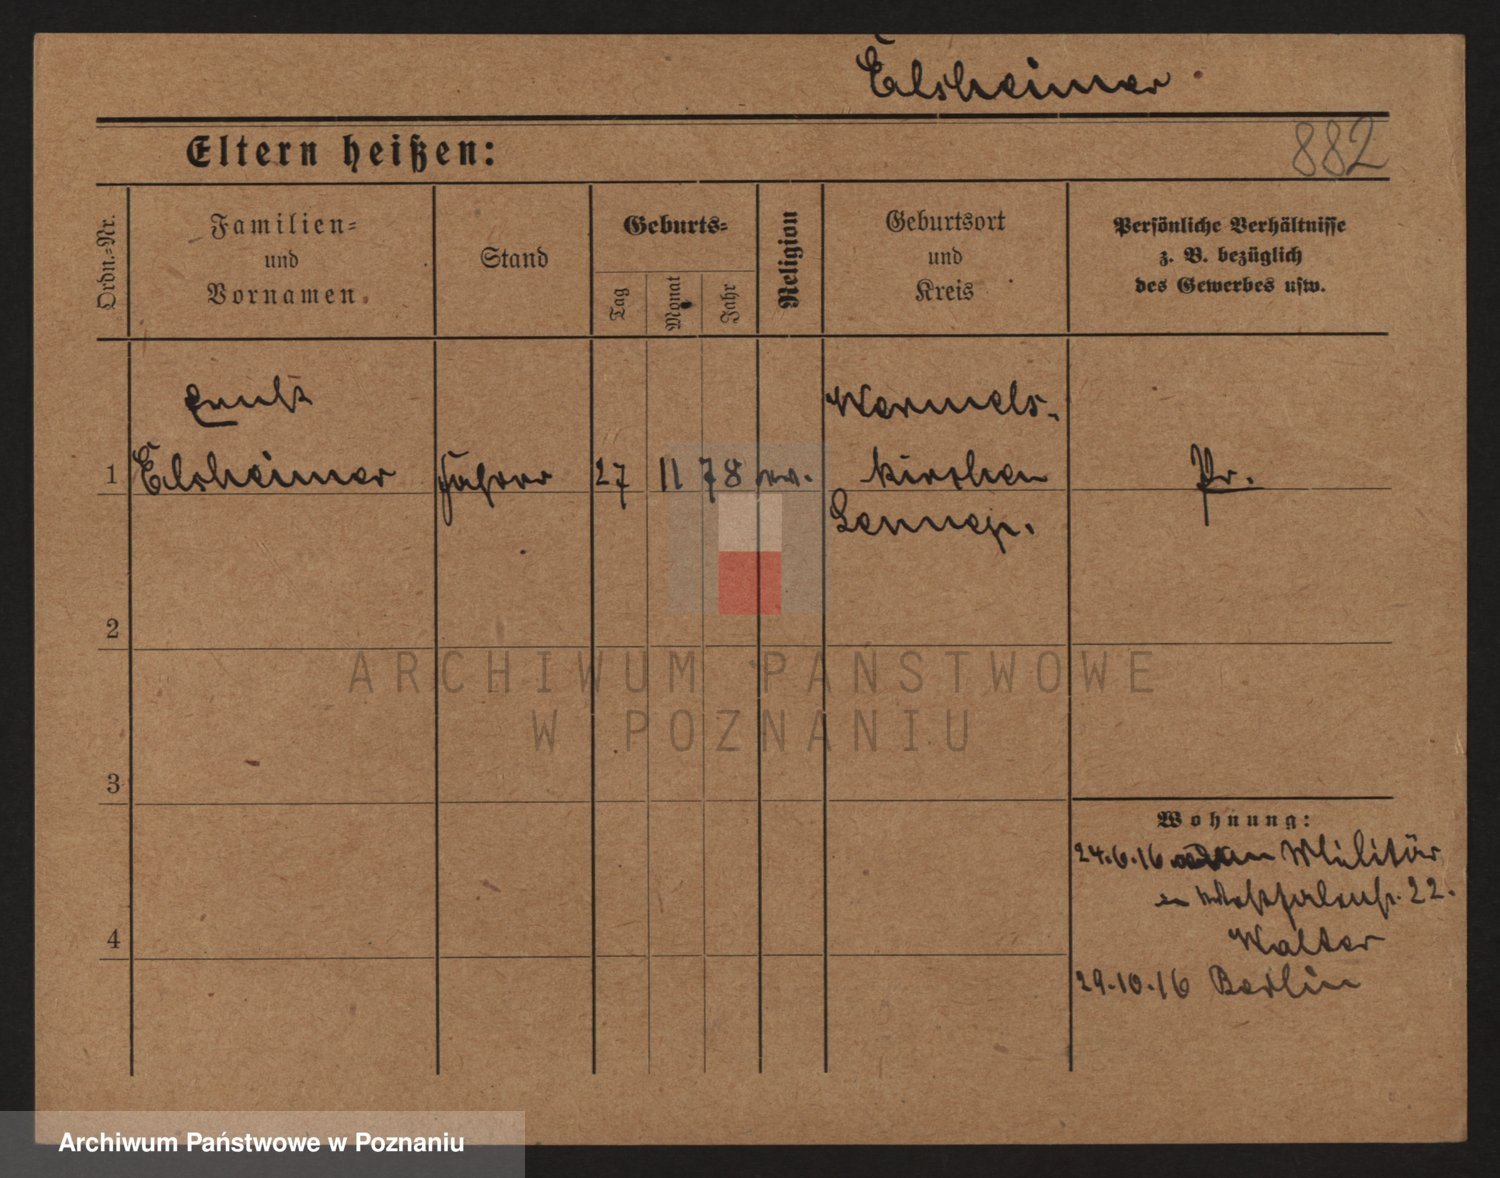 Elsheimer
Eltern heißen:
882
Ordn.-Nr.
Familien-
und
Vornamen.
Stand
Geburts-
Tag
Monat
Jahr
Religion
Geburtsort
und
Kreis
Persönliche Verhältnisse
z. B. bezüglich
des Gewerbes usw.
Ernst
Wermels-
1 Elsheimer 27 11 78 kirchen Pr.
Lennep.
2
ARCHIWUM PAŃSTWOWE
W POZNANIU
3
Wohnung:
24.6.16 Militär
22.
4
Walter
29.10.16 Berlin
Archiwum Państwowe w Poznaniu